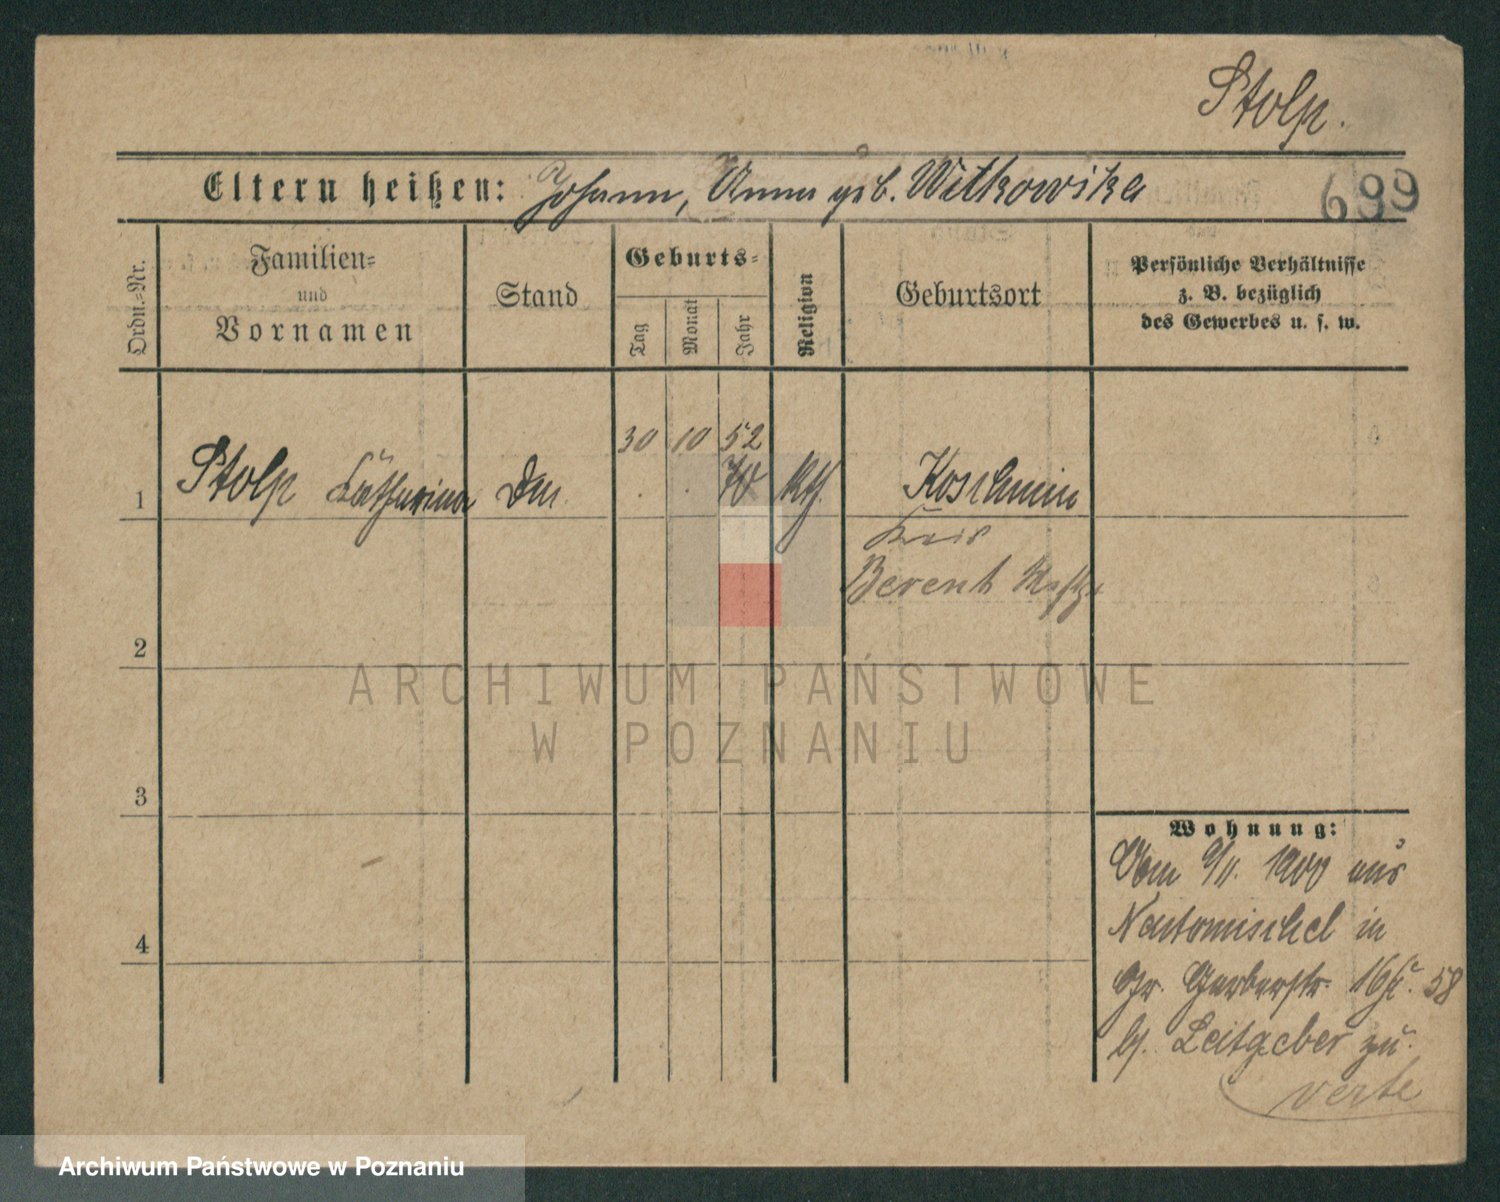 Stolp.
Eltern heißen: Johann, Anna geb. Witkowska
699
Ordn.-Nr.
Familien-
und
Vornamen
Stand
Geburts-
Tag
Monat
Jahr
Religion
Geburtsort
Persönliche Verhältnisse
z. B. bezüglich
des Gewerbes u. s. w.
30 10 52
1 Stolp Catharina 70 kth. Koschmin
Kreis
Berent
2
3
4
Wohnung:
Vom 9/11. 1900 aus
Neutomischel in
Gr. Gerberstr. 16
b/. Leitgeber zu.
verte
ARCHIWUM PAŃSTWOWE
W POZNANIU
Archiwum Państwowe w Poznaniu